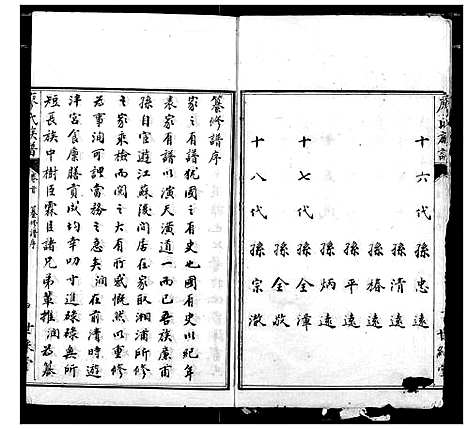 十六代孫忠遠
孫清遠
孫椿遠
孫平遠
孫炳遠
十七代孫全漳
孫全敬
十八代孫宗澂
纂修譜序
家之有譜猶國之有史也國有史以紀年
表家有譜以演天潢道一而已吾族廉甫
孫自宦遊江蘇後閒居在家取湘浦所修
之家乘檢而閱之大有所感慨然以重修
為事洵可當務之急矣潤在前清時遊
泮宮食廩膳貢成均幸叨寸進碌碌無所
短長族中樹臣霖臣諸兄弟輩推潤為纂
氏族譜
卷首
纂修譜序